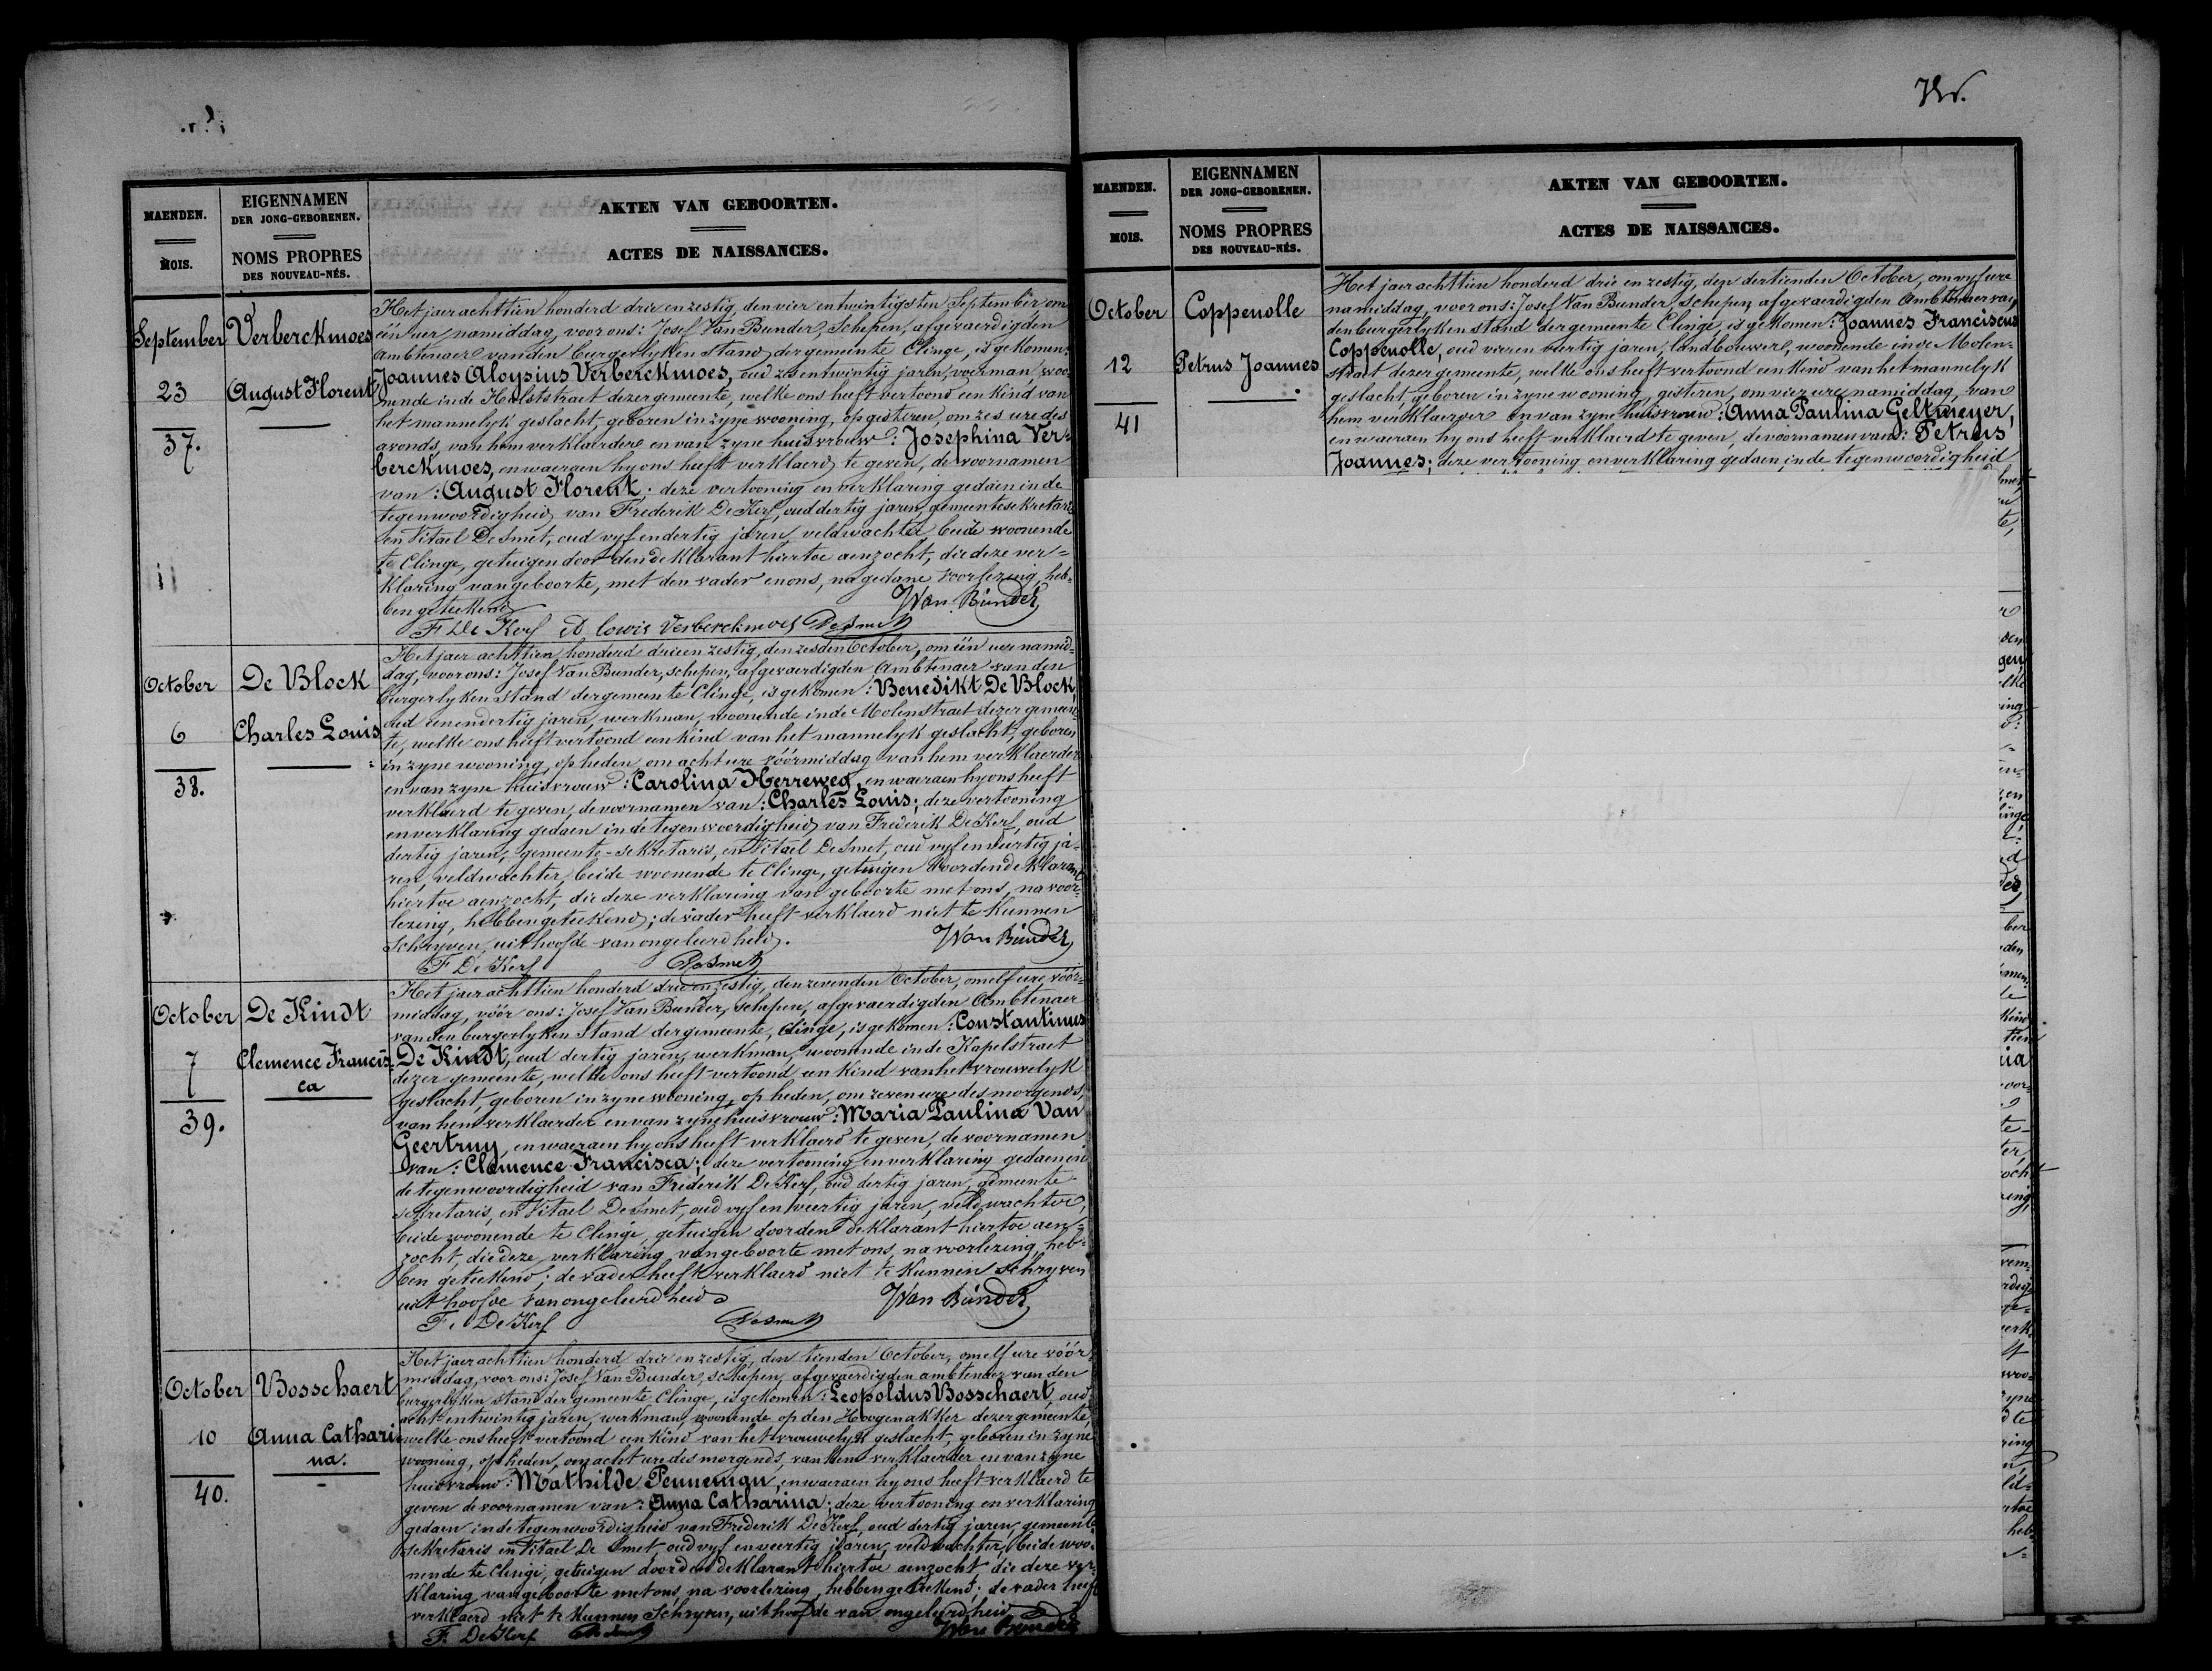 MAENDEN.
MOIS.
EIGENNAMEN
DER JONG-GEBORENEN.
NOMS PROPRES
DES NOUVEAU-NÉS.
AKTEN VAN GEBOORTEN.
ACTES DE NAISSANCES.
September
23
37.
Verberckmoes
August Florent
Het jaer achttien honderd drie en zestig, den vier en twintigsten September om
één uer namiddag, voor ons: Josef Van Bunder, Schepen, afgevaerdigden
Ambtenaer van den burgerlyken stand der gemeente Clinge, is gekomen:
Joannes Aloysius Verberckmoes, oud zes en twintig jaren, voerman, woo-
nende in de Hulststraet dezer gemeente, welke ons heeft vertoond een kind van
het mannelyk geslacht, geboren in zyne wooning, op gisteren, om zes ure des
avonds, van hem verklaerdere en van zyne huisvrouw: Josephina Ver-
berckmoes, en waeraen hy ons heeft verklaerd te geven, de voornamen
van: August Florent; deze vertooning en verklaring gedaen in de
tegenwoordigheid van Frederik De Kerf, oud dertig jaren, gemeentesekretaris
en Vitael De Smet, oud vyf en dertig jaren, veldwachter beide woonende
te Clinge, getuigen door den deklarant hiertoe aenzocht, die deze ver-
klaring van geboorte, met den vader en ons, na gedane voorlezing, heb-
ben geteekend
Van Bunder
F De Kerf A lowis Verberckmoes DeSmet
October
6
38.
De Block
Charles Louis
Het jaer achttien honderd drie en zestig, den zesden October, om één uer namid-
dag, voor ons: Josef Van Bunder, schepen, afgevaerdigden Ambtenaer van den
burgerlyken stand der gemeente Clinge, is gekomen: Benedikt De Block,
oud een en dertig jaren, werkman, woonende in de Molenstraet dezer gemeen-
te, welke ons heeft vertoond een kind van het mannelyk geslacht, geboren
in zyne wooning, op heden, om acht ure vóórmiddag van hem verklaerder
en van zyne huisvrouw: Carolina Herreweg, en waeraen hy ons heeft
verklaerd te geven, de voornamen van: Charles Louis; deze vertooning
en verklaring gedaen in de tegenwoordigheid van Frederik De Kerf, oud
dertig jaren, gemeente-sekretaris, en Vitael De Smet, oud vyf en veertig ja-
ren, veldwachter, beide woonende te Clinge, getuigen door den deklarant
hiertoe aenzocht, die deze verklaring van geboorte met ons, na voor-
lezing, hebben geteekend; de vader heeft verklaerd niet te kunnen
schryven, uit hoofde van ongeleerdheid.
Van Bunder
F De Kerf DeSmet
October
7
39.
De Kindt
Clemence Francis-
ca
Het jaer achttien honderd drie en zestig, den zevenden October, om elf ure, vóór-
middag, vóór ons: Josef Van Bunder, schepen, afgevaerdigden Ambtenaer
van den burgerlyken Stand der gemeente, Clinge, is gekomen: Constantinus
De Kindt, oud dertig jaren, werkman, woonende in de Kapelstraet
dezer gemeente, welke ons heeft vertoond een kind van het vrouwelyk
geslacht, geboren in zyne wooning, op heden, om zeven ure des morgends,
van hem verklaerder en van zyne huisvrouw: Maria Paulina Van
Geertruy, en waeraen hy ons heeft verklaerd te geven, de voornamen
van: Clemence Francisca; deze vertooning en verklaring gedaen in
de tegenwoordigheid van Frederik De Kerf, oud dertig jaren, gemeente-
sekretaris, en Vitael De Smet, oud vyf en veertig jaren, veldwachter,
beide woonende te Clinge, getuigen door den deklarant hiertoe aen-
zocht, die deze verklaring van geboorte met ons, na voorlezing, heb-
ben geteekend; de vader heeft verklaerd niet te kunnen schryven
uit hoofde van ongeleerdheid
Van Bunder
F. De Kerf DeSmet
October
10
40.
Bosschaert
Anna Cathari-
na.
Het jaer achttien honderd drie en zestig, den tienden October, om elf ure vóór-
middag, voor ons: Josef Van Bunder, schepen, afgevaerdigden ambtenaer van den
burgerlyken stand der gemeente Clinge, is gekomen: Leopoldus Bosschaert, oud
acht en twintig jaren, werkman, woonende op den Hoogenakker dezer gemeente,
welke ons heeft vertoond een kind van het vrouwelyk geslacht, geboren in zyne
wooning, op heden, om acht ure des morgends, van hem verklaerder en van zyne
huisvrouw: Mathilde Penneman, en waeraen hy ons heeft verklaerd te
geven de voornamen van: Anna Catharina; deze vertooning en verklaring
gedaen in de tegenwoordigheid van Frederik De Kerf, oud dertig jaren, gemeente
sekretaris en Vitael De Smet, oud vyf en veertig jaren, veldwachter, beide woo-
nende te Clinge, getuigen door den deklarant hiertoe aenzocht die deze ver-
klaring van geboorte met ons, na voorlezing, hebben geteekend; de vader heeft
verklaerd niet te kunnen schryven, uit hoofde van ongeleerdheid
F. De Kerf DeSmet Van Bunder
MAENDEN.
MOIS.
EIGENNAMEN
DER JONG-GEBORENEN.
NOMS PROPRES
DES NOUVEAU-NÉS.
AKTEN VAN GEBOORTEN.
ACTES DE NAISSANCES.
October
12
41
Coppenolle
Petrus Joannes
Het jaer achttien honderd drie en zestig, den dertienden October, om vyf ure
namiddag, voor ons: Josef Van Bunder, Schepen, afgevaerdigden Ambtenaer van
den burgerlyken stand der gemeente Clinge, is gekomen: Joannes Franciscus
Coppenolle, oud vier en veertig jaren, landbouwere, woonende in de Molen-
straet dezer gemeente, welke ons heeft vertoond een kind van het mannelyk
geslacht, geboren in zyne wooning, gisteren, om vier ure namiddag, van
hem verklaerder en van zyne huisvrouw: Anna Paulina Geltmeyer,
en waeraen hy ons heeft verklaerd te geven, de voornamen van: Petrus
Joannes; deze vertooning en verklaring gedaen, in de tegenwoordigheid